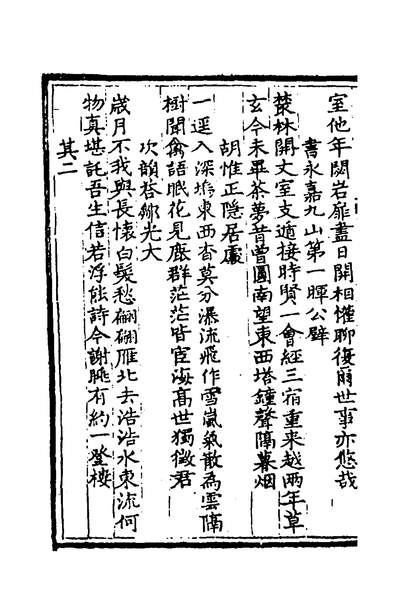 室他年閟岩扉盡日開相懽聊復爾世事亦悠哉
書永嘉九山第一暉公壁
叢林開丈室支遁接時賢一會經三宿重来越兩年草
玄今未畢茶夢昔曽圓南望東西塔鐘聲隔暮烟
胡惟正隐居
一逕入深塢東西杳莫分瀑流飛作雪嵐氣散為雲隔
樹聞禽語眠花見鹿群茫茫皆宦海髙世獨徴君
次韻答鄒光大
嵗月不我與長懐白髪愁翩翩雁北去浩浩水東流何
物真堪託吾生信若浮能詩今謝朓有約一登樓
其二